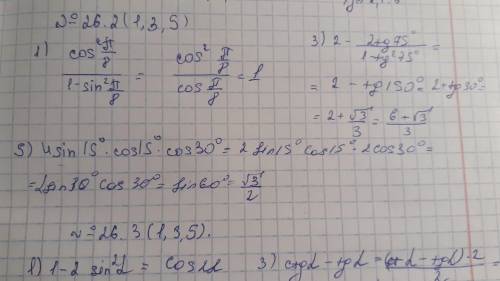 № 26.2 (1,3,5)
1) cos²π/8 / 1-sin²π/8 = cos² π/8 / cos π/8 = 1
3) 2 - 2+g75° / 1-tg²75° =
= 2 - tg150° = 2+tg30° =
= 2+√3 / 3 = 6+√3 / 3
5) 4sin15° · cos15° · cos30° = 2 sin15° cos15° · 2cos30° =
= 2sin30° cos30° = sin60° = √3 / 2
№ 26.3 (1,3,5).
1) 1-2 sin²α = cos2α
3) ctgα - tgα =